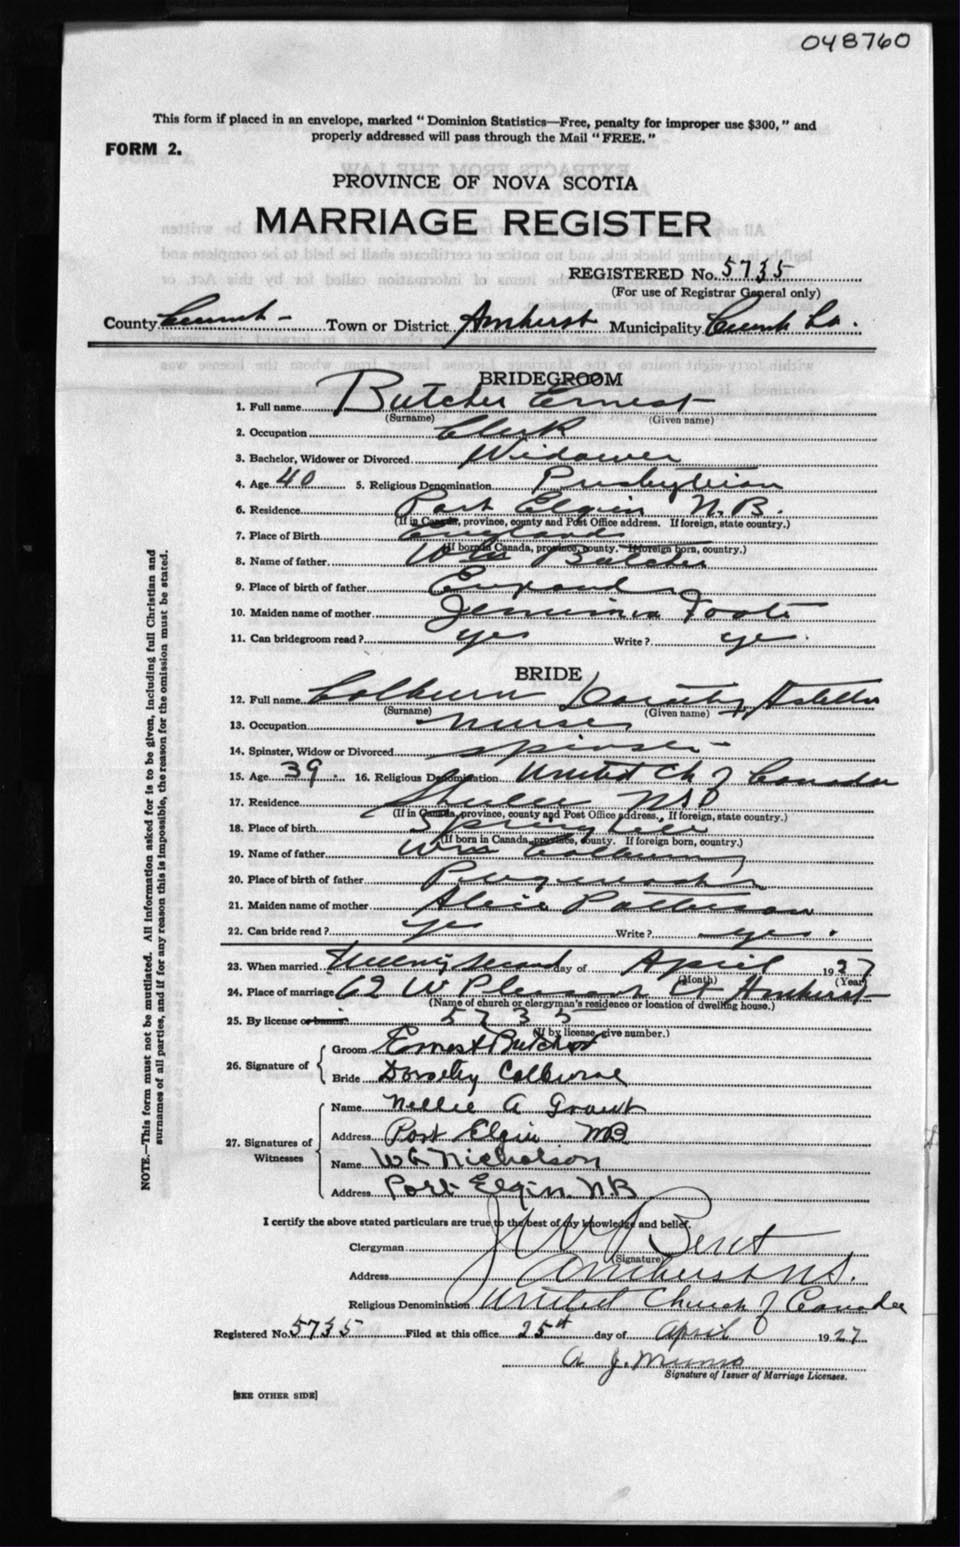 048760
This form if placed in an envelope, marked "Dominion Statistics—Free, penalty for improper use $300," and
properly addressed will pass through the Mail "FREE."
FORM 2.
PROVINCE OF NOVA SCOTIA
MARRIAGE REGISTER
REGISTERED No. 5735
(For use of Registrar General only)
County Cumb - Town or District Amherst Municipality Cumb Co.
BRIDEGROOM
1. Full name Butcher Ernest
(Surname) (Given name)
2. Occupation Clerk
3. Bachelor, Widower or Divorced Widower
4. Age 40 5. Religious Denomination Presbyterian
6. Residence Port Elgin N.B.
(If in Canada, province, county and Post Office address. If foreign, state country.)
7. Place of Birth England
(If born in Canada, province, county. If foreign born, country.)
8. Name of father Wm Butcher
9. Place of birth of father England
10. Maiden name of mother Jemimia Foote
11. Can bridegroom read? yes Write? yes.
BRIDE
12. Full name Colburn Dorothy
(Surname) (Given name)
13. Occupation nurse
14. Spinster, Widow or Divorced spinster
15. Age 39 16. Religious Denomination United Ch of Canada
17. Residence Shulee NS
(If in Canada, province, county and Post Office address. If foreign, state country.)
18. Place of birth Springhill
(If born in Canada, province, county. If foreign born, country.)
19. Name of father Wm Colburn
20. Place of birth of father Pugwash
21. Maiden name of mother Alice Patterson
22. Can bride read? yes Write? yes.
23. When married Twenty second day of April 1927
(Month) (Year)
24. Place of marriage 62 W Pleasant St Amherst
(Name of church or clergyman's residence or location of dwelling house.)
25. By license or banns 5735
(If by license, give number.)
26. Signature of
Groom Ernest Butcher
Bride Dorothy Colburne
27. Signatures of Witnesses
Name Nellie A Grant
Address Port Elgin NB
Name W G Nicholson
Address Port Elgin. N.B
I certify the above stated particulars are true to the best of my knowledge and belief.
Clergyman
(Signature)
Address Amherst N.S.
Religious Denomination United Church of Canada
Registered No. 5735 Filed at this office 25th day of April 1927
A J. Munro
Signature of Issuer of Marriage Licenses.
[SEE OTHER SIDE]
NOTE.—This form must not be mutilated. All information asked for is to be given, including full Christian and
surnames of all parties, and if for any reason this is impossible, the reason for the omission must be stated.